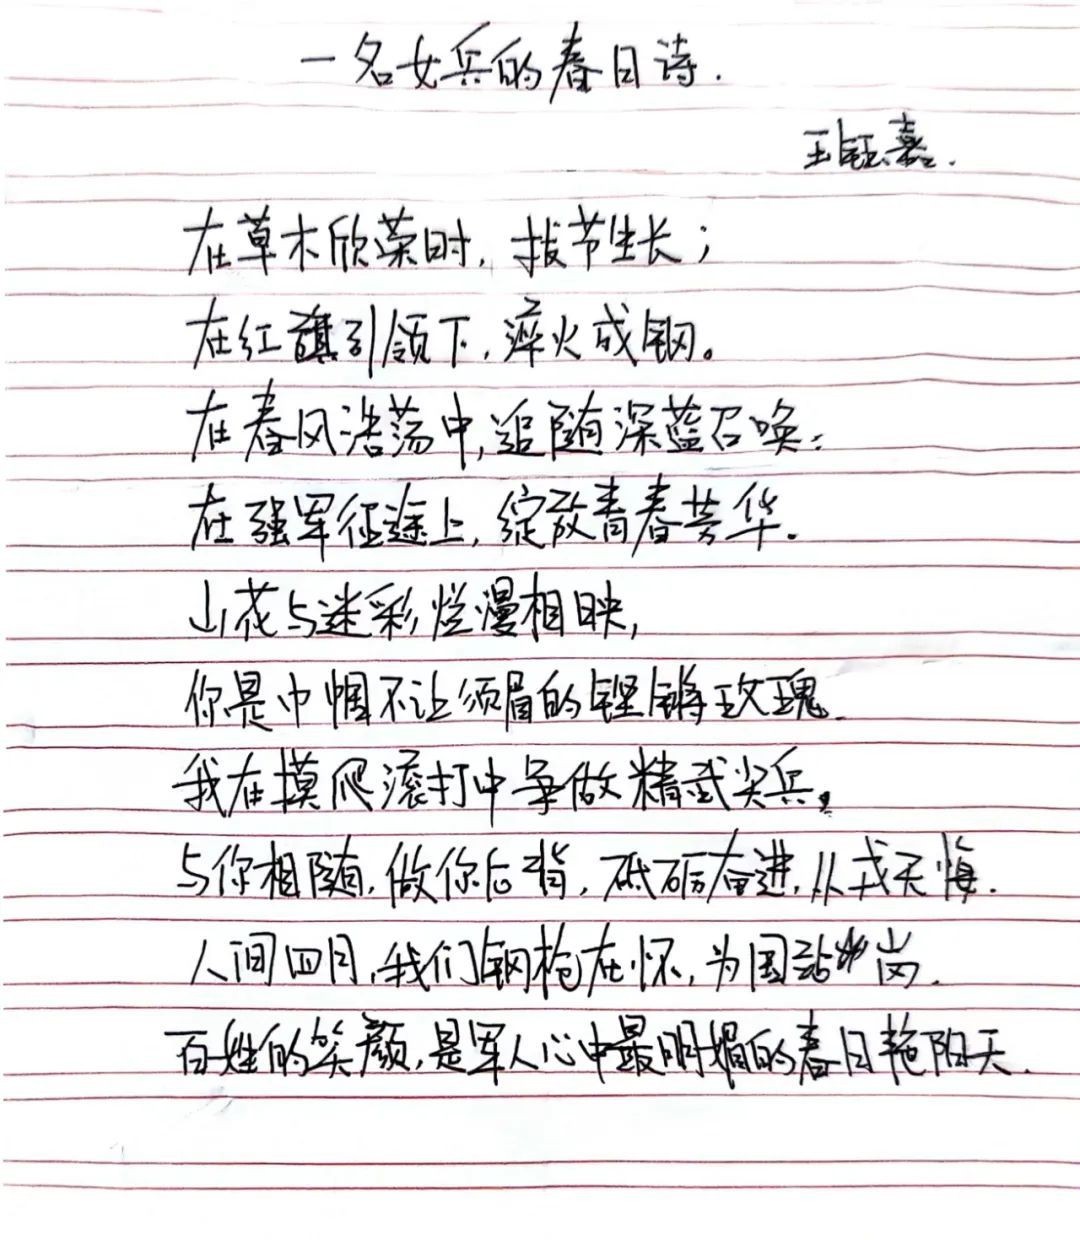 一名女兵的春日诗.
王钰嘉.
在草木欣荣时，拔节生长；
在红旗引领下，淬火成钢。
在春风浩荡中，追随深蓝召唤；
在强军征途上，绽放青春芳华.
山花与迷彩烂漫相映，
你是巾帼不让须眉的铿锵玫瑰.
我在摸爬滚打中争做精武尖兵。
与你相随，做你后背，砥砺奋进，从戎无悔.
人间四月，我们钢枪在怀，为国站岗.
百姓的笑颜，是军人心中最明媚的春日艳阳天.